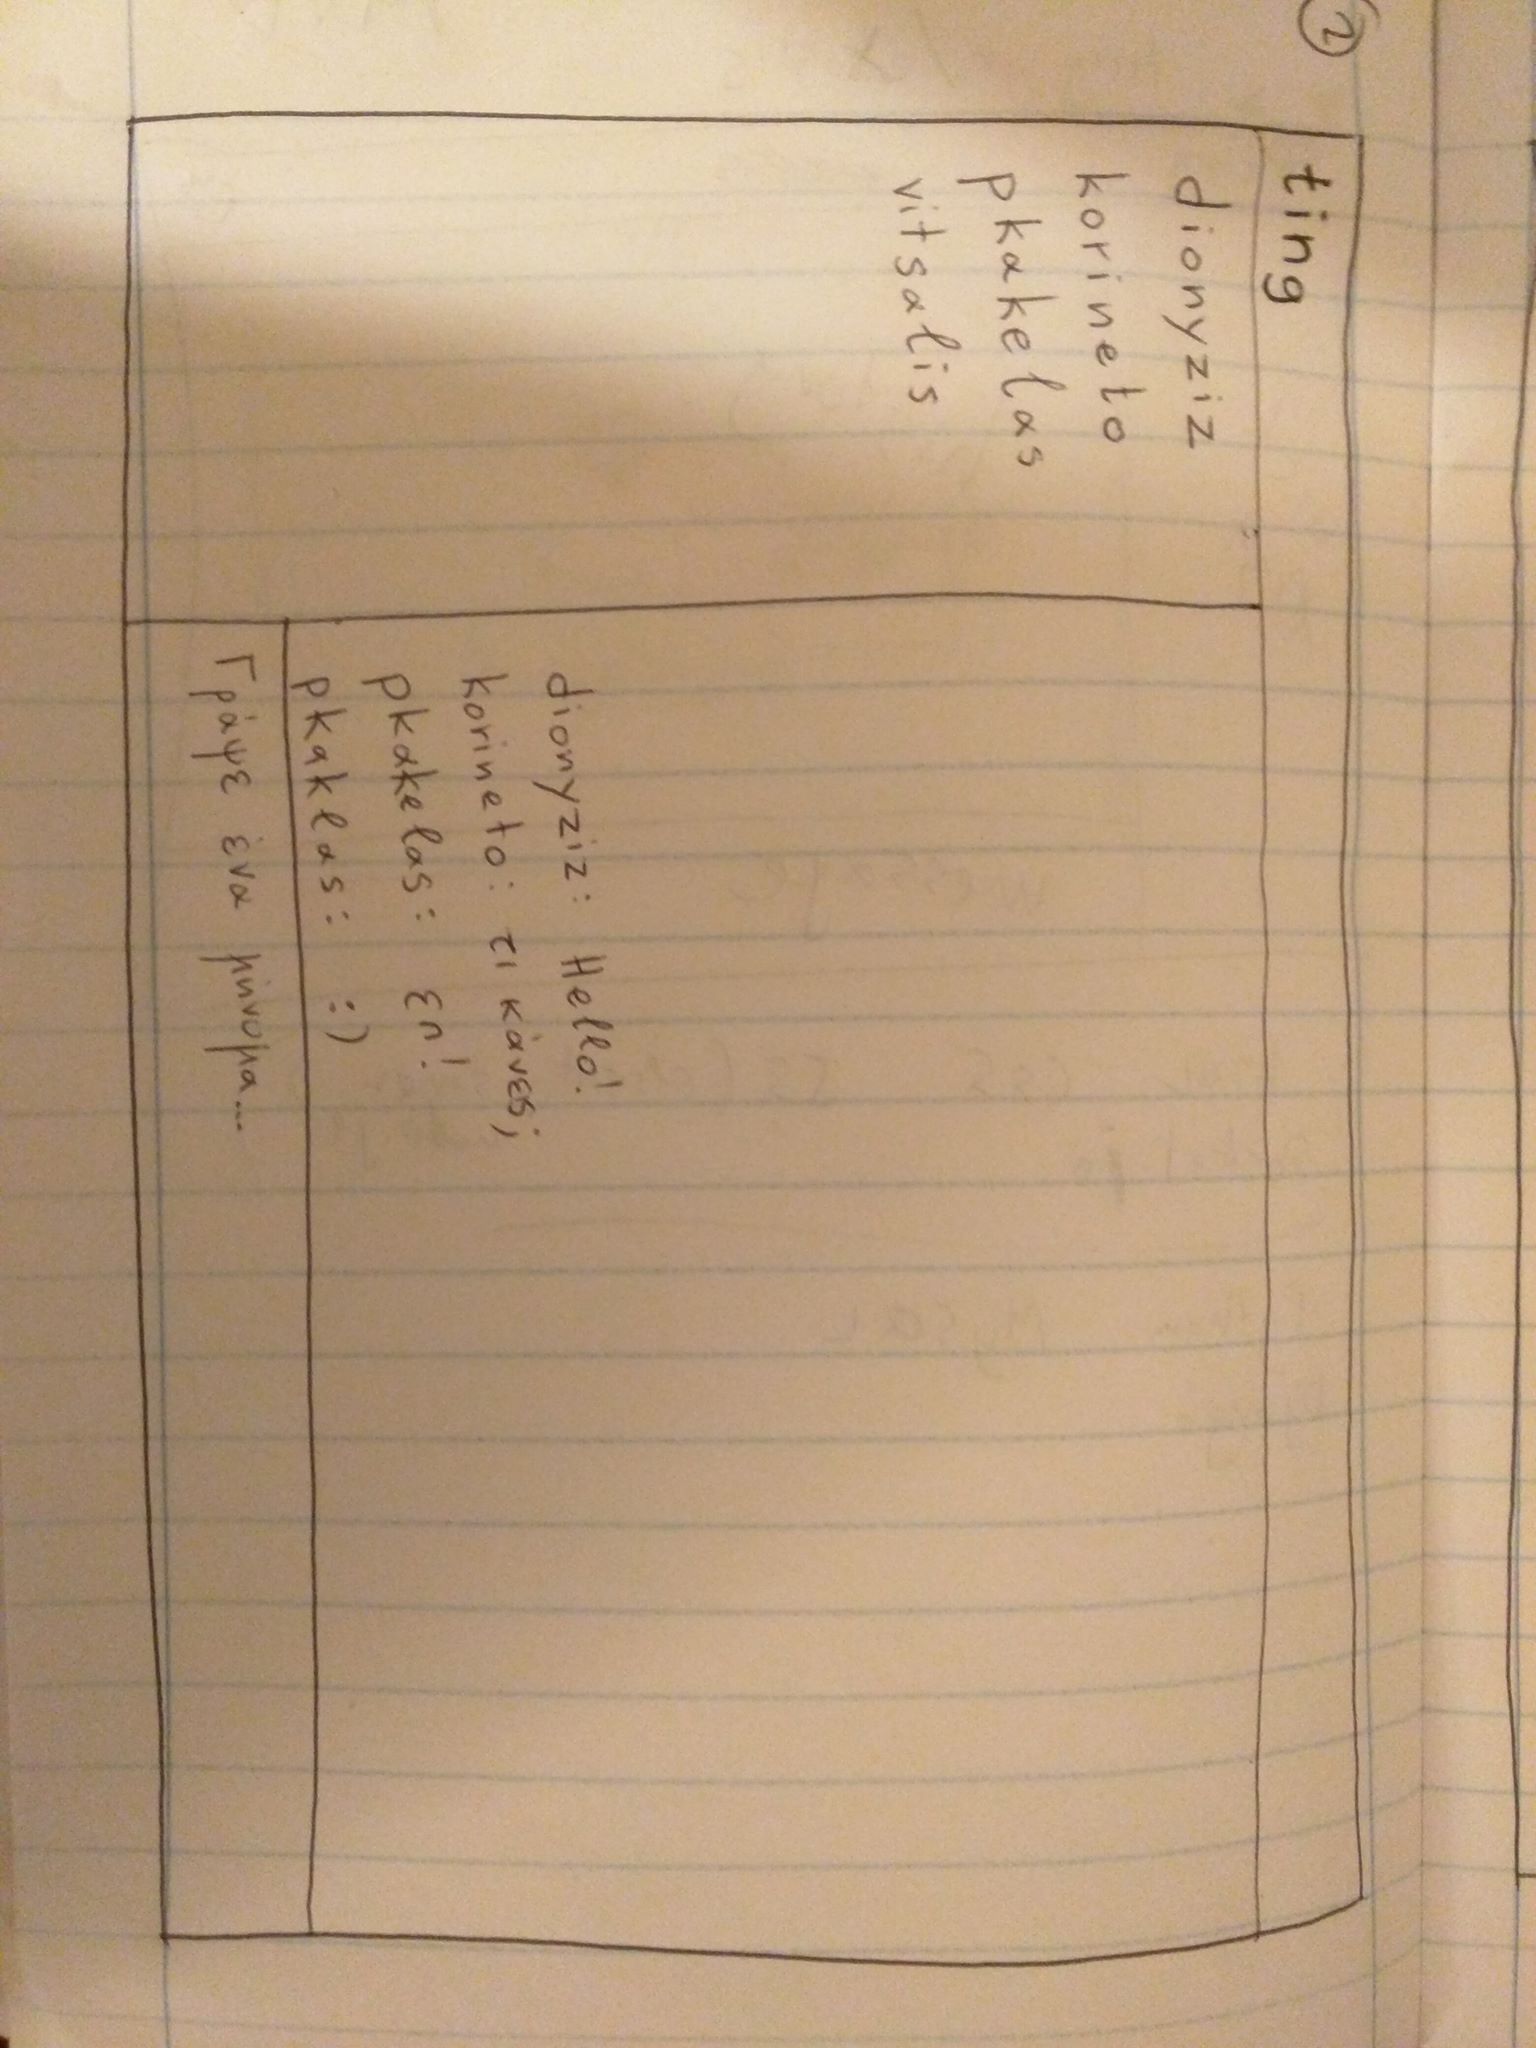 2
ting
dionyziz
korineto
pkakelas
vitsalis
dionyziz: Hello!
korineto: τι κάνεις;
pkakelas: επ!
pkaklas: :)
Γράψε ένα μύνυμα...